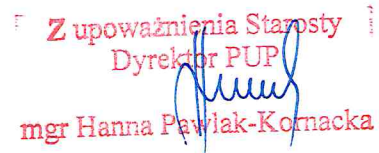 Z upoważnienia Starosty
Dyrektor PUP
mgr Hanna Pawlak-Kornacka